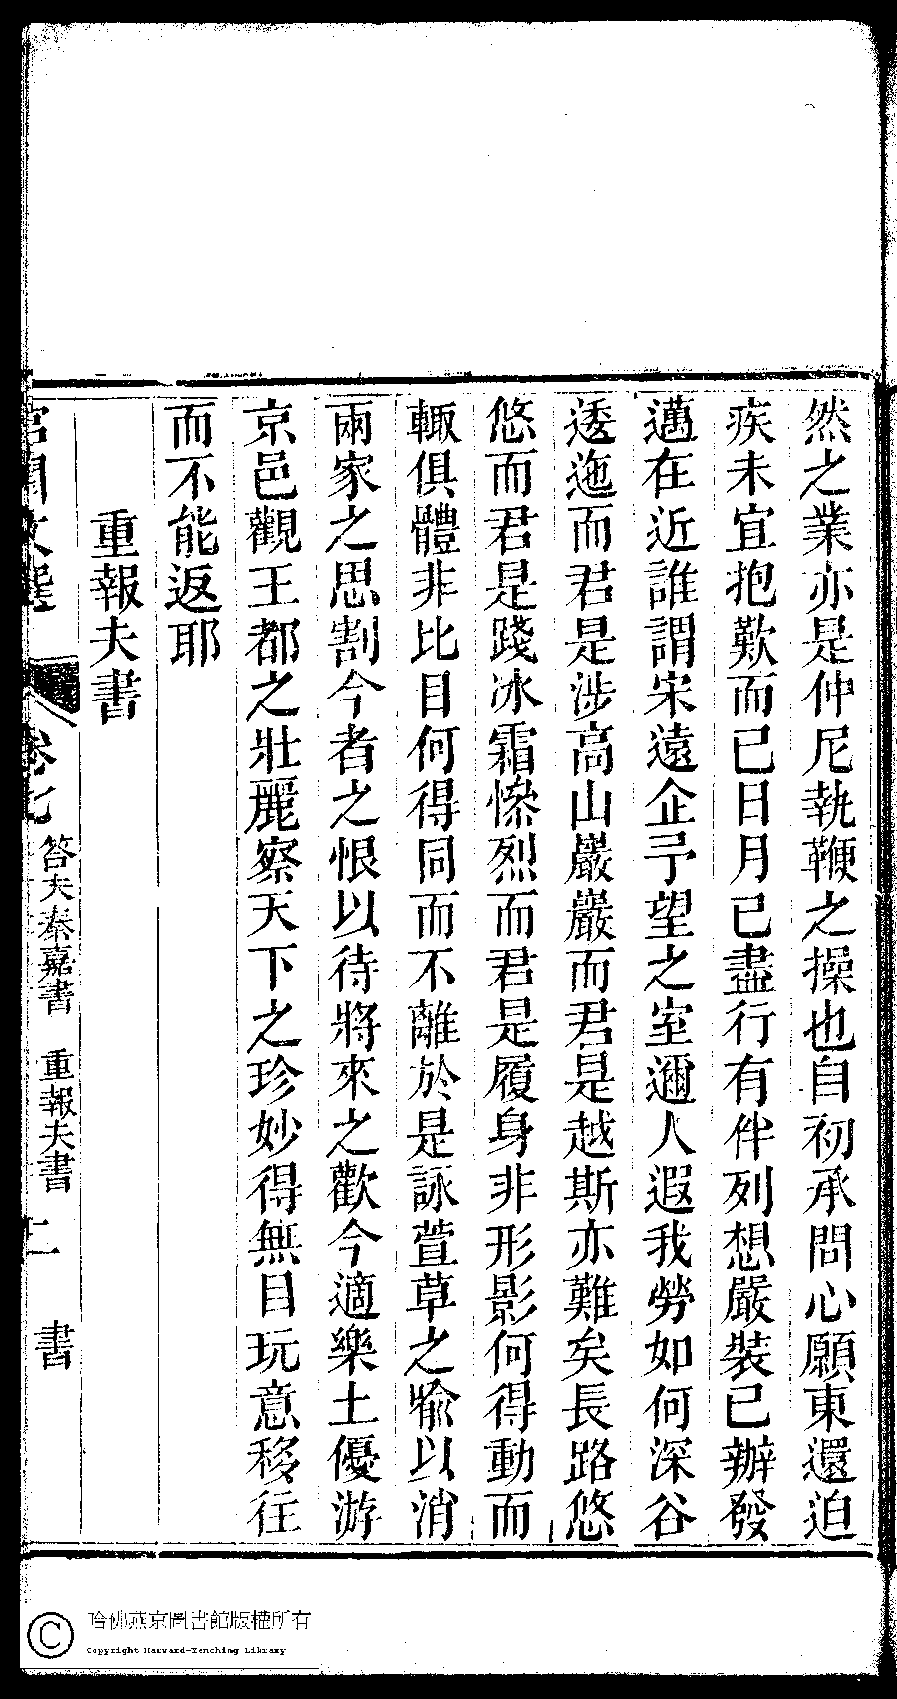 然之業亦是仲尼執鞭之操也自初承問心願東還迫
疾未宜抱歎而已日月已盡行有伴列想嚴裝已辦發
邁在近誰謂宋遠企予望之室邇人遐我勞如何深谷
逶迤而君是涉高山巖巖而君是越斯亦難矣長路悠
悠而君是踐冰霜慘烈而君是履身非形影何得動而
輙俱體非比目何得同而不離於是詠萱草之喻以消
兩家之思割今者之恨以待將來之歡今適樂土優游
京邑觀王都之壯麗察天下之珍妙得無目玩意移往
而不能返耶
重報夫書
宮閨文選 卷七 答夫秦嘉書 重報夫書 書
哈佛燕京圖書館版權所有
Copyright Harvard-Yenching Library